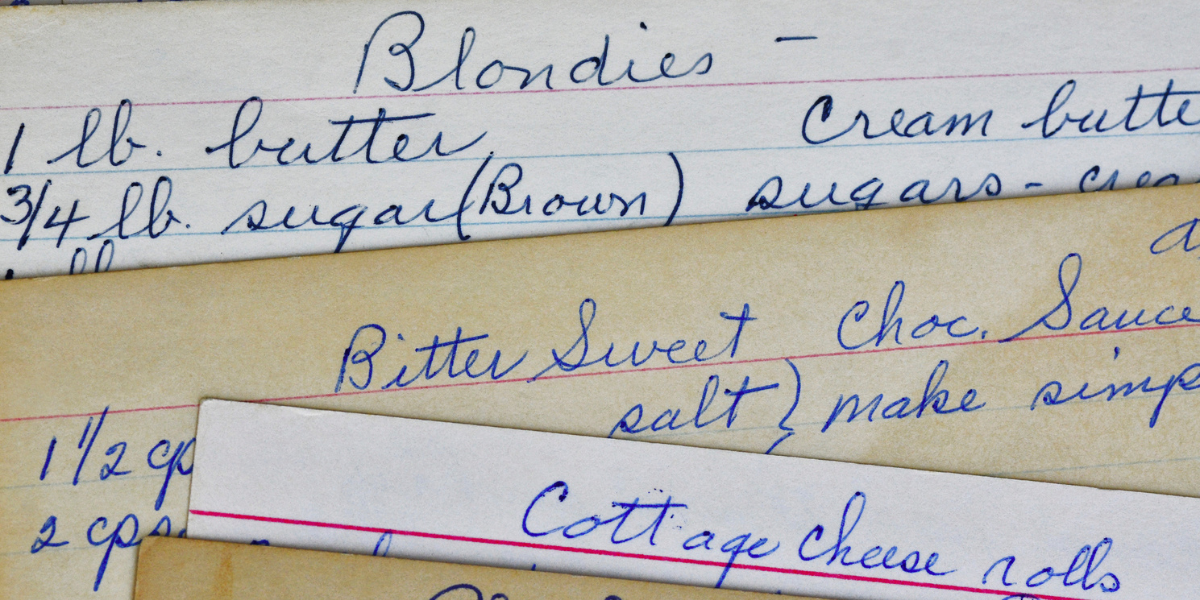 Blondies -
1 lb. butter Cream butte
3/4 lb. sugar (Brown) sugars - crea
Bitter Sweet Choc. Sauce
salt } make simp
1 1/2 cp
2 cps
Cottage cheese rolls